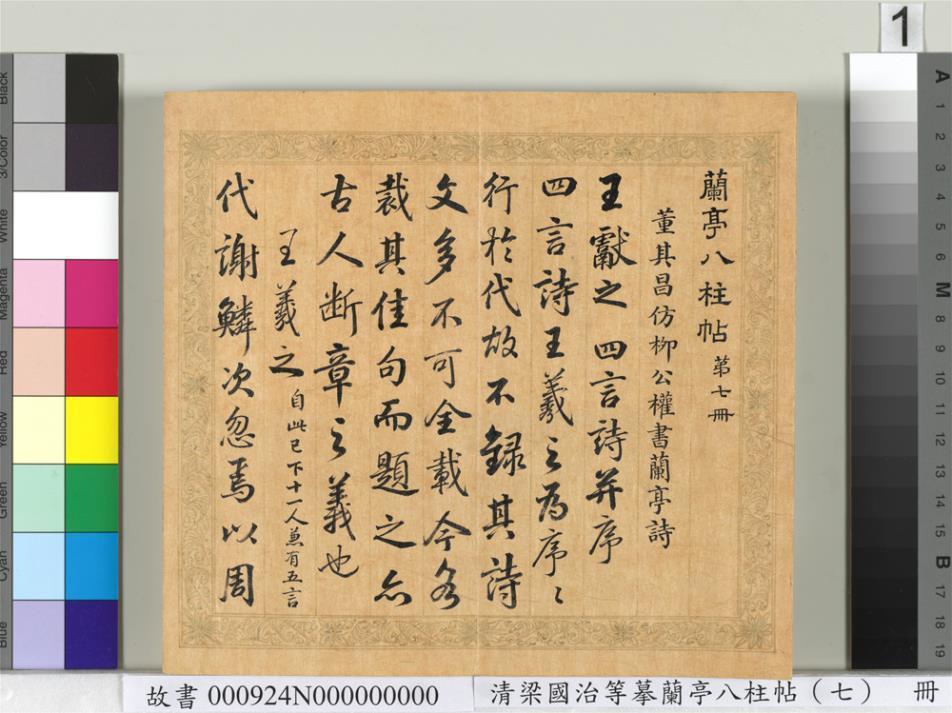 1
蘭亭八柱帖 第七冊
董其昌仿柳公權書蘭亭詩
王獻之四言詩并序
四言詩王羲之為序〻
行於代故不錄其詩
文多不可全載今各
裁其佳句而題之亦
古人断章之義也
王羲之 自此已下十一人兼有五言
代謝鱗次忽焉以周
故書 000924N000000000
清梁國治等摹蘭亭八柱帖（七） 冊
Black
3/Color
White
Magenta
Red
Yellow
Green
Cyan
Blue
A
1
2
3
4
5
6
M
8
9
10
11
12
13
14
15
B
17
18
19